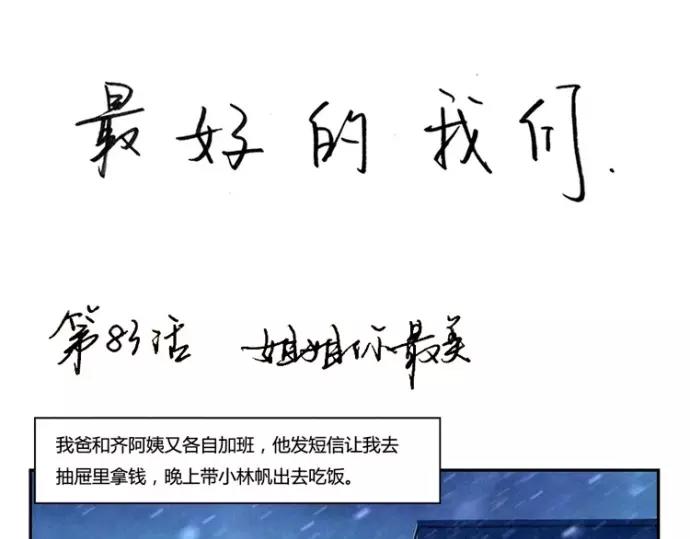 最好的我们.
第83话 姐姐你最美
我爸和齐阿姨又各自加班，他发短信让我去
抽屉里拿钱，晚上带小林帆出去吃饭。